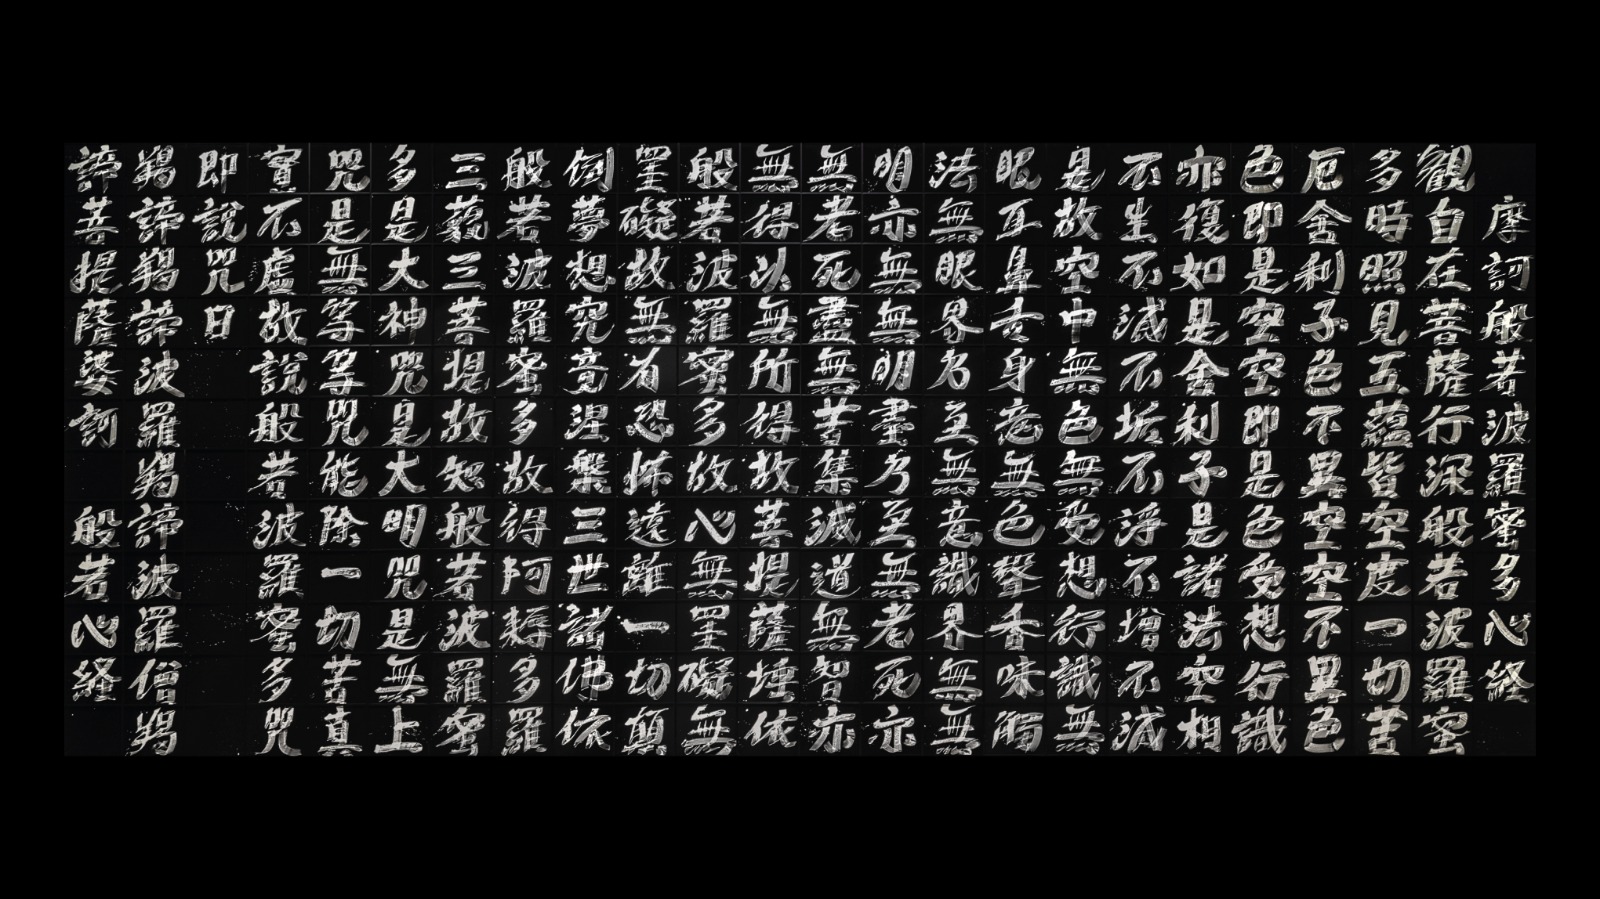 摩訶般若波羅蜜多心経
観自在菩薩行深般若波羅蜜
多時照見五蘊皆空度一切苦
厄舎利子色不異空空不異色
色即是空空即是色受想行識
亦復如是舎利子是諸法空相
不生不滅不垢不浄不増不減
是故空中無色無受想行識無
眼耳鼻舌身意無色聲香味觸
法無眼界乃至無意識界無無
明亦無無明盡乃至無老死亦
無老死盡無苦集滅道無智亦
無得以無所得故菩提薩埵依
般若波羅蜜多故心無罣礙無
罣礙故無有恐怖遠離一切顛
倒夢想究竟涅槃三世諸佛依
般若波羅蜜多故得阿耨多羅
三藐三菩提故知般若波羅蜜
多是大神咒是大明咒是無上
咒是無等等咒能除一切苦真
實不虚故説般若波羅蜜多咒
即説咒曰
羯諦羯諦波羅羯諦波羅僧羯
諦菩提薩婆訶 般若心経